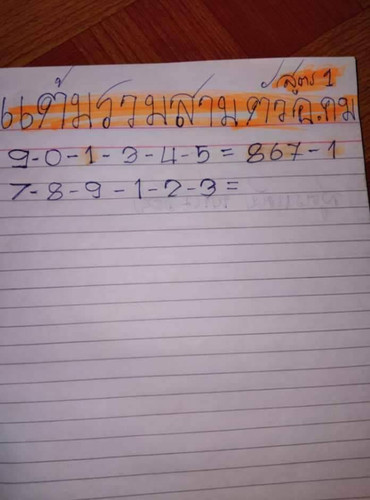 สูตร 1
แต้มรวมสามตัวฉ.คม
9-0-1-3-4-5= 867-1
7-8-9-1-2-3=